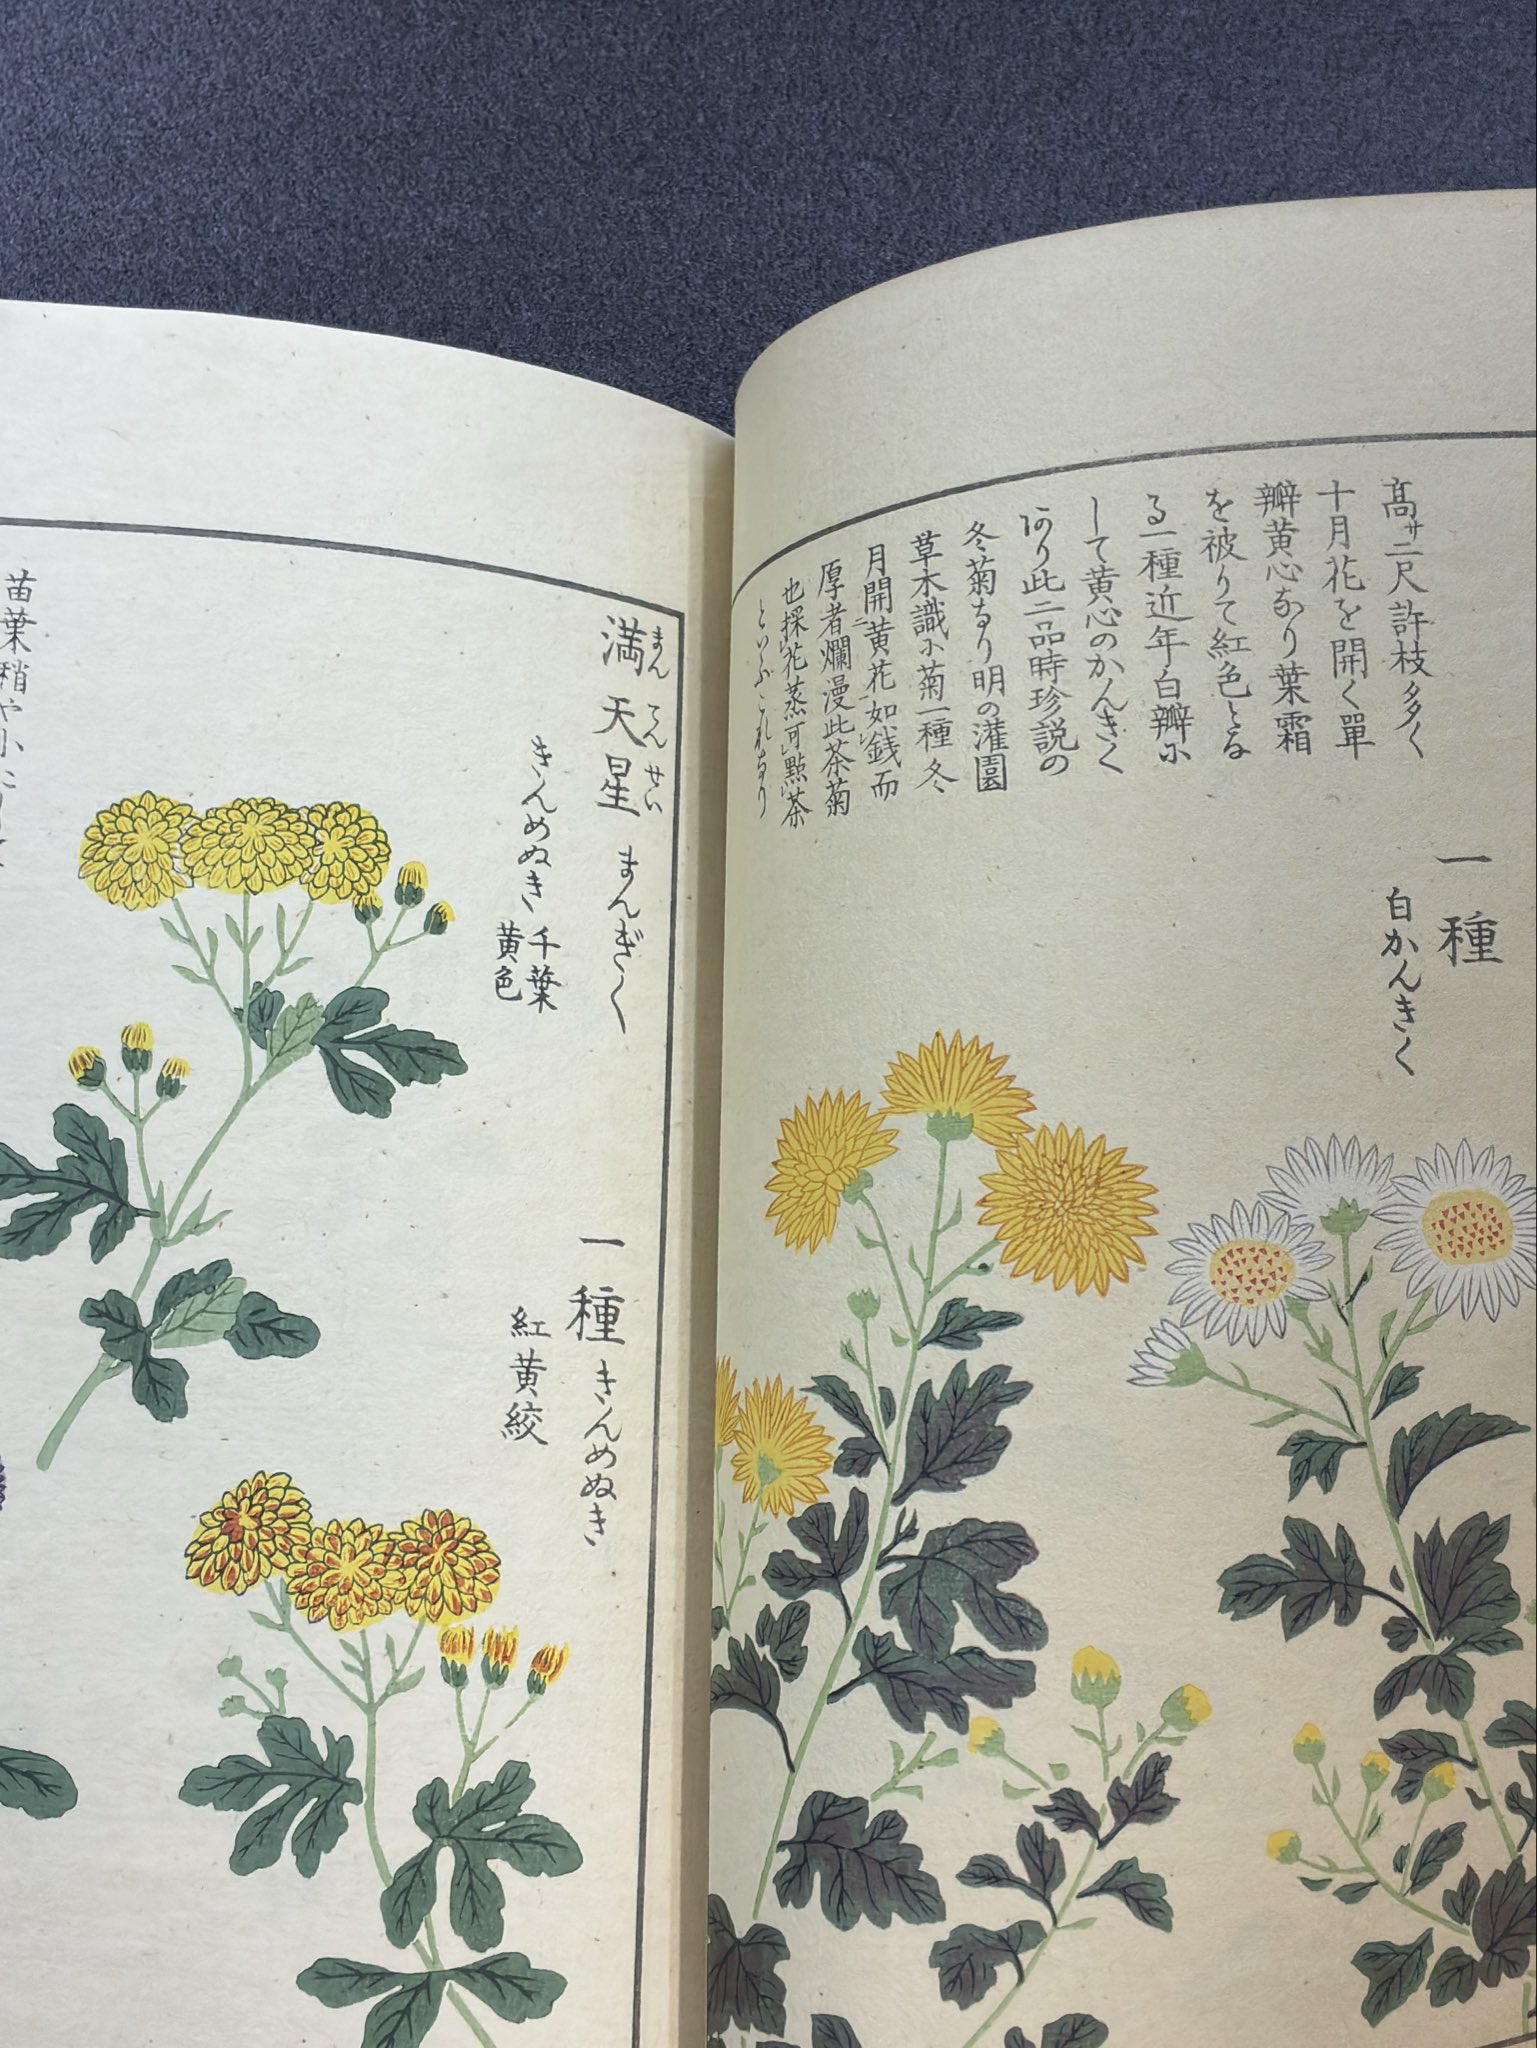 高サ二尺許枝多く
十月花を開く單
瓣黄心なり葉霜
を被りて紅色とな
る一種近年白瓣に
して黄心のかんきく
あり此二品時珍説の
冬菊なり明の灌園
草木識に菊一種冬
月開黄花如銭而
厚者爛漫此茶菊
也採花蒸可點茶
といふこれなり
一種
白かんきく
満天星 まんぎく
まんてんせい
きんめぬき 千葉
黄色
一種 きんめぬき
紅黄絞
苗葉稍や小にして